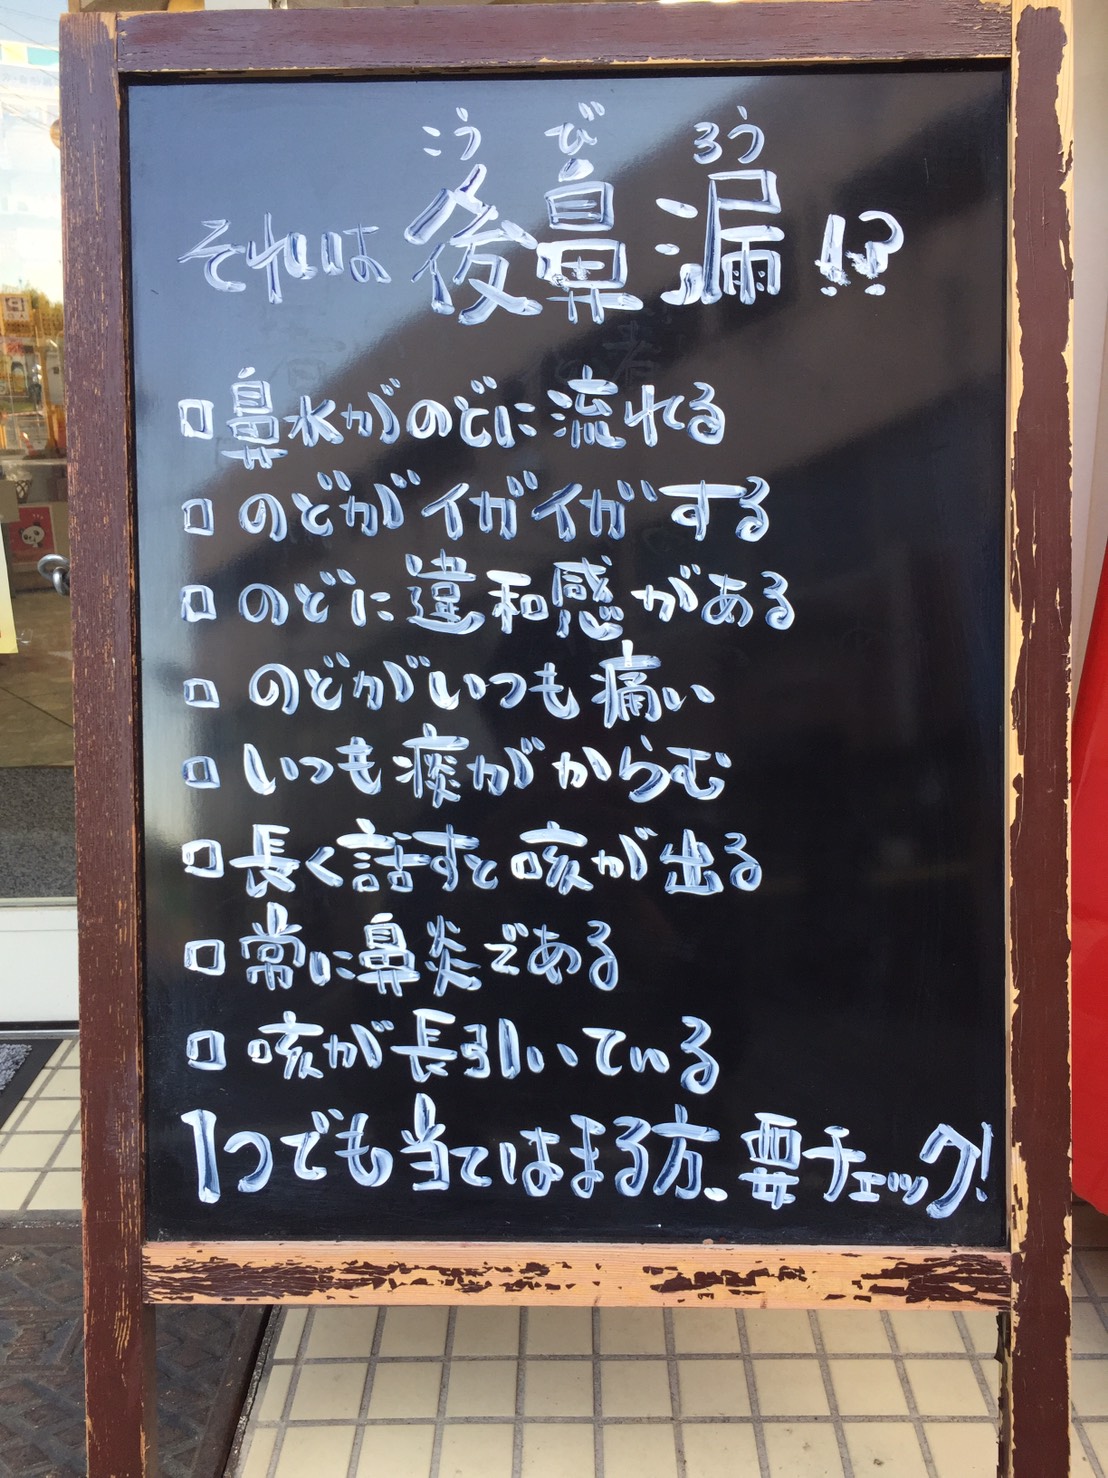 こうびろう
それは後鼻漏!?
□鼻水がのどに流れる
□のどがイガイガする
□のどに違和感がある
□のどがいつも痛い
□いつも痰がからむ
□長く話すと咳が出る
□常に鼻炎である
□咳が長引いている
1つでも当てはまる方、要チェック!